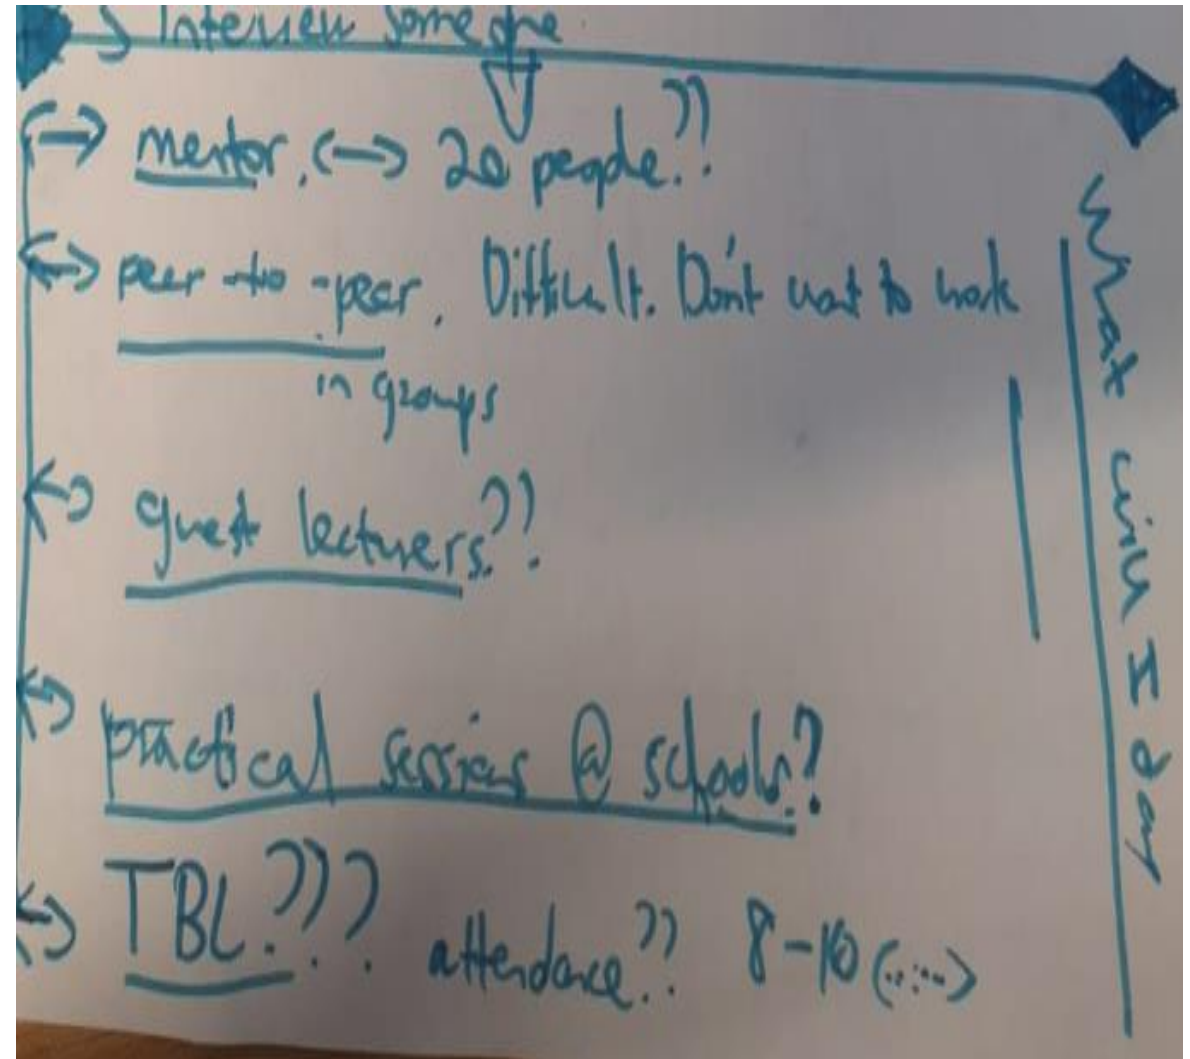 Interview someone
mentor. <--> 20 people??
peer-to-peer. Difficult. Don't want to work
in groups
guest lecturers??
practical sessions @ schools?
TBL??? attendance?? 8-10
What will I